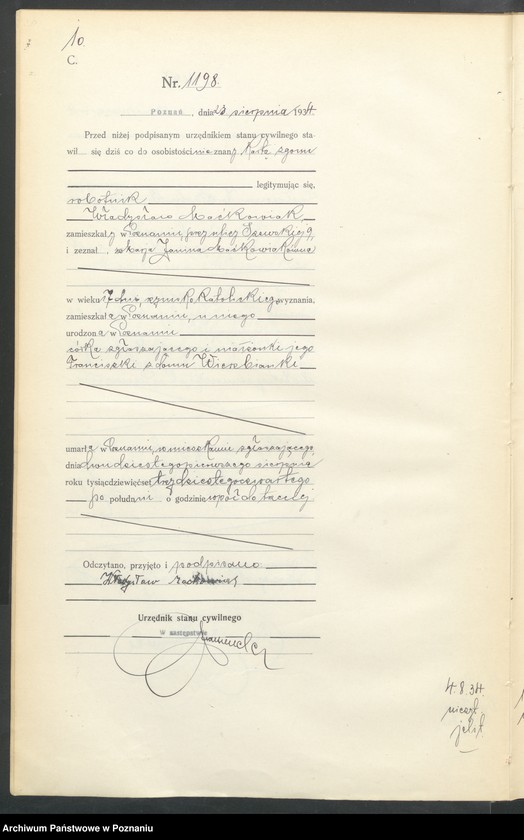 10
C.
Nr. 1198.
Poznań, dnia 23 sierpnia 1934.
Przed niżej podpisanym urzędnikiem stanu cywilnego sta-
wił się dziś co do osobistości nieznany, Kartę zgonu
legitymując się,
robotnik
Władysław Maćkowiak,
zamieszkały w Poznaniu, przy ulicy Szewskiej 9,
i zeznał, że Maria Janina Maćkowiakówna
w wieku 17 dni, rzymsko katolickiego wyznania,
zamieszkała w Poznaniu, u niego
urodzona w Poznaniu
córka zgłaszającego i małżonki jego
Franciszki z domu
umarła w Poznaniu, w mieszkaniu zgłaszającego,
dnia dwudziestegopierwszego sierpnia
roku tysiącdziewięćset trzydziestegoczwartego
po południu o godzinie wpół do
Odczytano, przyjęto i podpisano
Władysław Maćkowiak
Urzędnik stanu cywilnego
W zastępstwie
4.8.34.
Archiwum Państwowe w Poznaniu